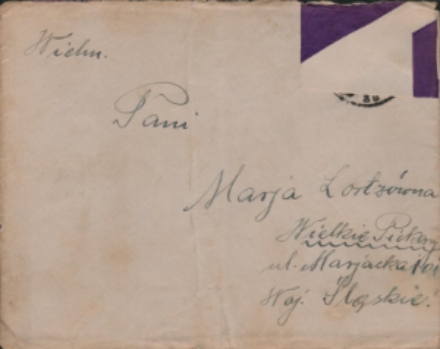 Wielm.
Pani
Marja Lortzówna
Wielkie Piekary
ul. Marjacka 101
Woj. Śląskie.